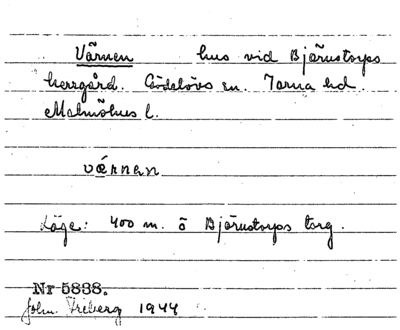 Värnen hus vid Björnstorps
herrgård. Gödelövs sn. Torna hd.
Malmöhus l.
værnan
Läge: 400 m. ö Björnstorps torg.
Nr 5838.
John. Treberg 1944